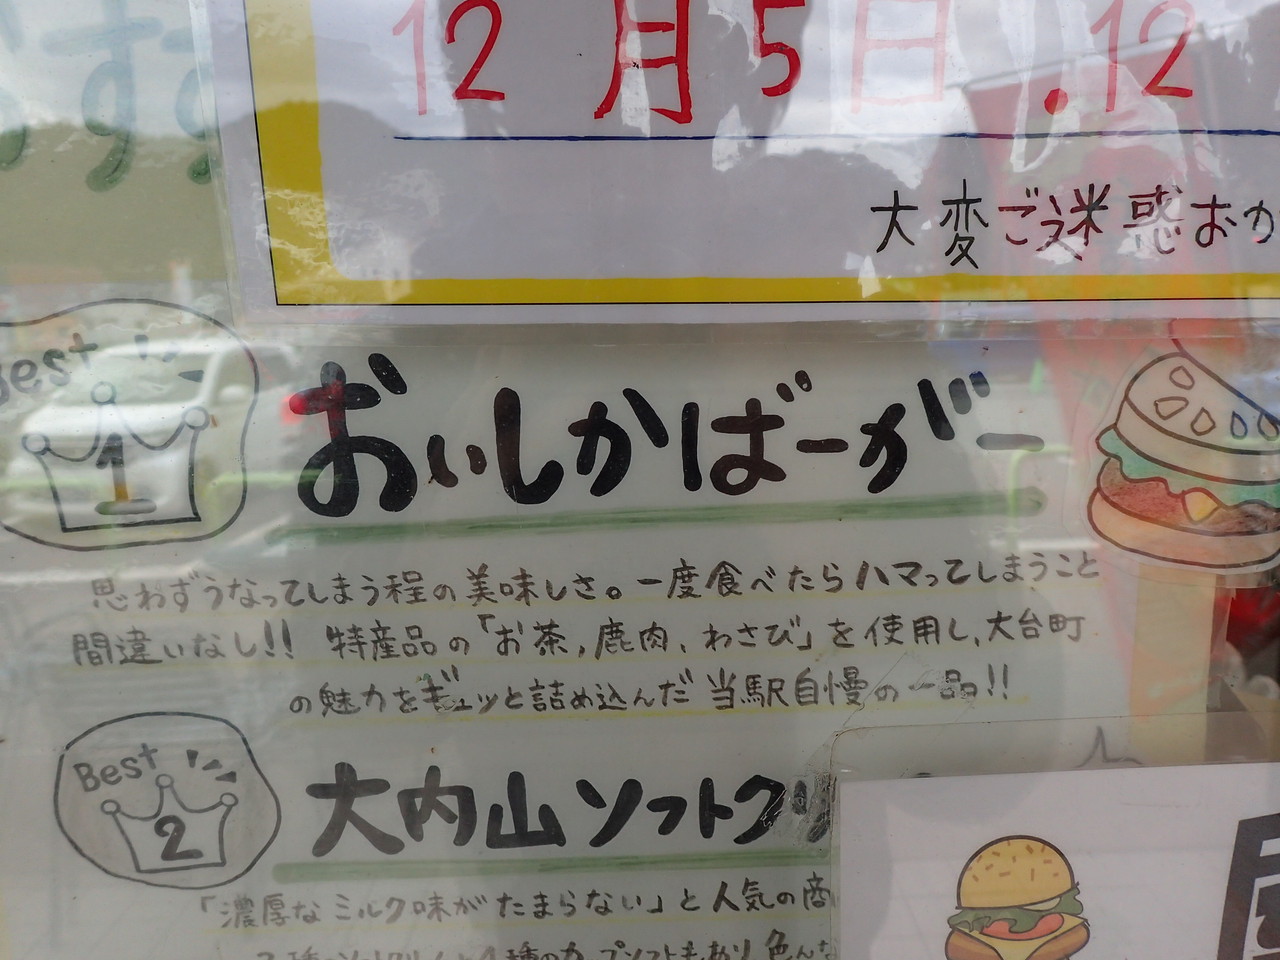 すす
12月5日.12
大変ご迷惑おか
Best
1
おぃしかばーがー
思わずうなってしまう程の美味しさ。一度食べたらハマってしまうこと
間違いなし!! 特産品の「お茶,鹿肉、わさび」を使用し、大台町
の魅力をギュッと詰め込んだ当駅自慢の一品!!
Best
2
大内山ソフトクリ
「濃厚なミルク味がたまらない」と人気の商